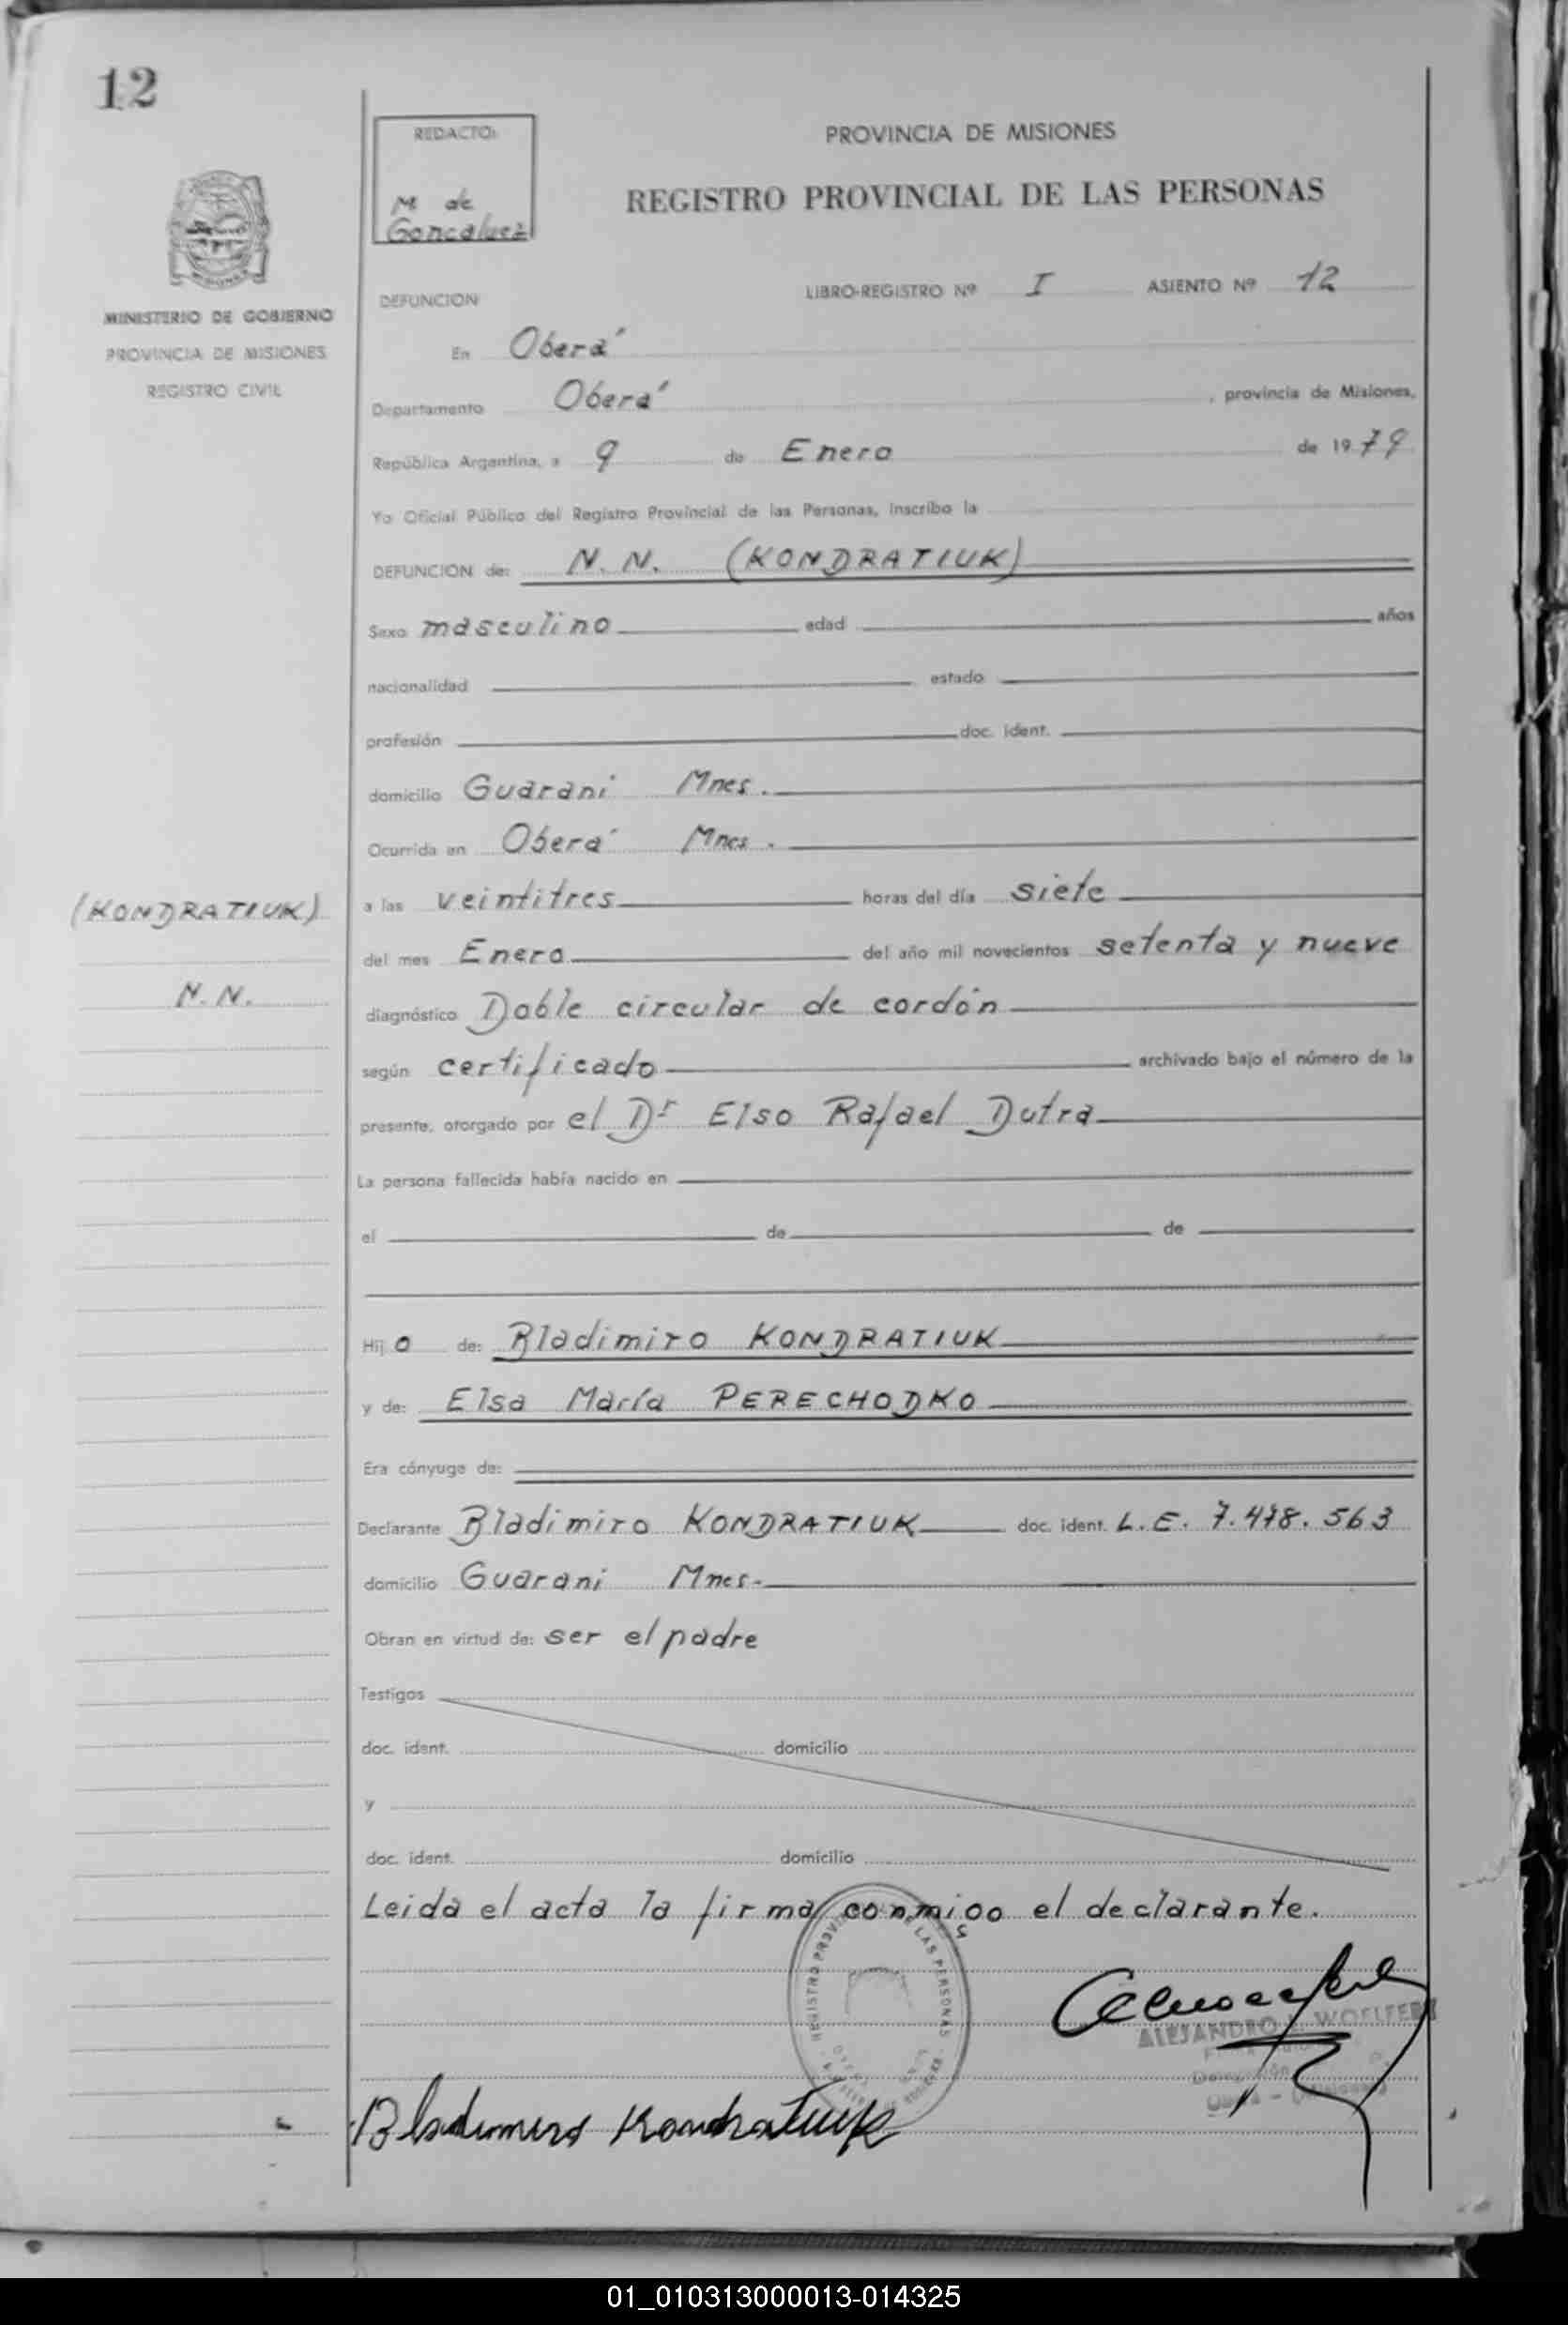 12
REDACTO:
M de
Goncalvez
PROVINCIA DE MISIONES
REGISTRO PROVINCIAL DE LAS PERSONAS
MINISTERIO DE GOBIERNO
PROVINCIA DE MISIONES
REGISTRO CIVIL
DEFUNCION LIBRO-REGISTRO Nº I ASIENTO Nº 12
En Oberá
Departamento Oberá , provincia de Misiones,
República Argentina, a 9 de Enero de 19 79
Yo Oficial Público del Registro Provincial de las Personas, inscribo la
DEFUNCION de: N. N. (KONDRATIUK)
Sexo masculino edad años
nacionalidad estado
profesión doc. ident.
domicilio Guarani Mnes.
Ocurrida en Oberá Mnes.
(KONDRATIUK)
N. N.
a las veintitres horas del día siete
del mes Enero del año mil novecientos setenta y nueve
diagnóstico Doble circular de cordón
según certificado archivado bajo el número de la
presente, otorgado por el Dr Elso Rafael Dutra
La persona fallecida había nacido en
el de de
Hij o de: Bladimiro KONDRATIUK
y de: Elsa María PERECHODKO
Era cónyuge de:
Declarante Bladimiro KONDRATIUK doc. ident. L.E. 7.478.563
domicilio Guarani Mnes.
Obran en virtud de: ser el padre
Testigos
doc. ident. domicilio
y
doc. ident. domicilio
Leida el acta la firma conmigo el declarante.
REGISTRO PROVINCIAL DE LAS PERSONAS
ALEJANDRO WOELFERT
Bladimiro Kondratiuk
01_010313000013-014325